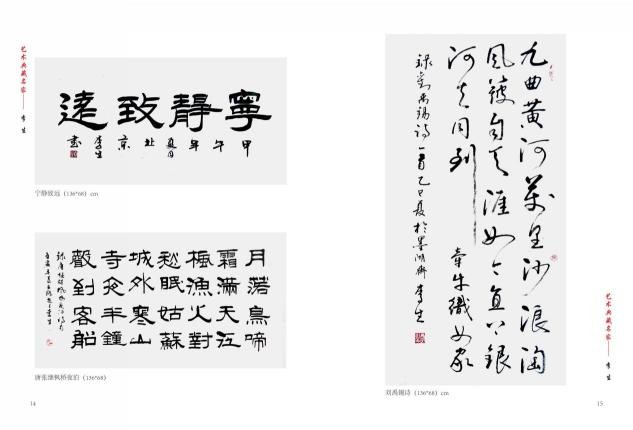 艺术典藏名家——李生
寧靜致遠
甲午年夏月北京李生書
宁静致远（136*68）cm
月落烏啼
霜滿天江
楓漁火對
愁眠姑蘇
城外寒山
寺夜半鐘
聲到客船
唐张继枫桥夜泊（136*68）
14
九曲黄河萬里沙浪淘
風簸自天涯如今直上銀
河去同到牽牛織女家
錄劉禹錫詩一首乙巳夏於墨湖齋李生
刘禹锡诗（136*68）cm
艺术典藏名家——李生
15